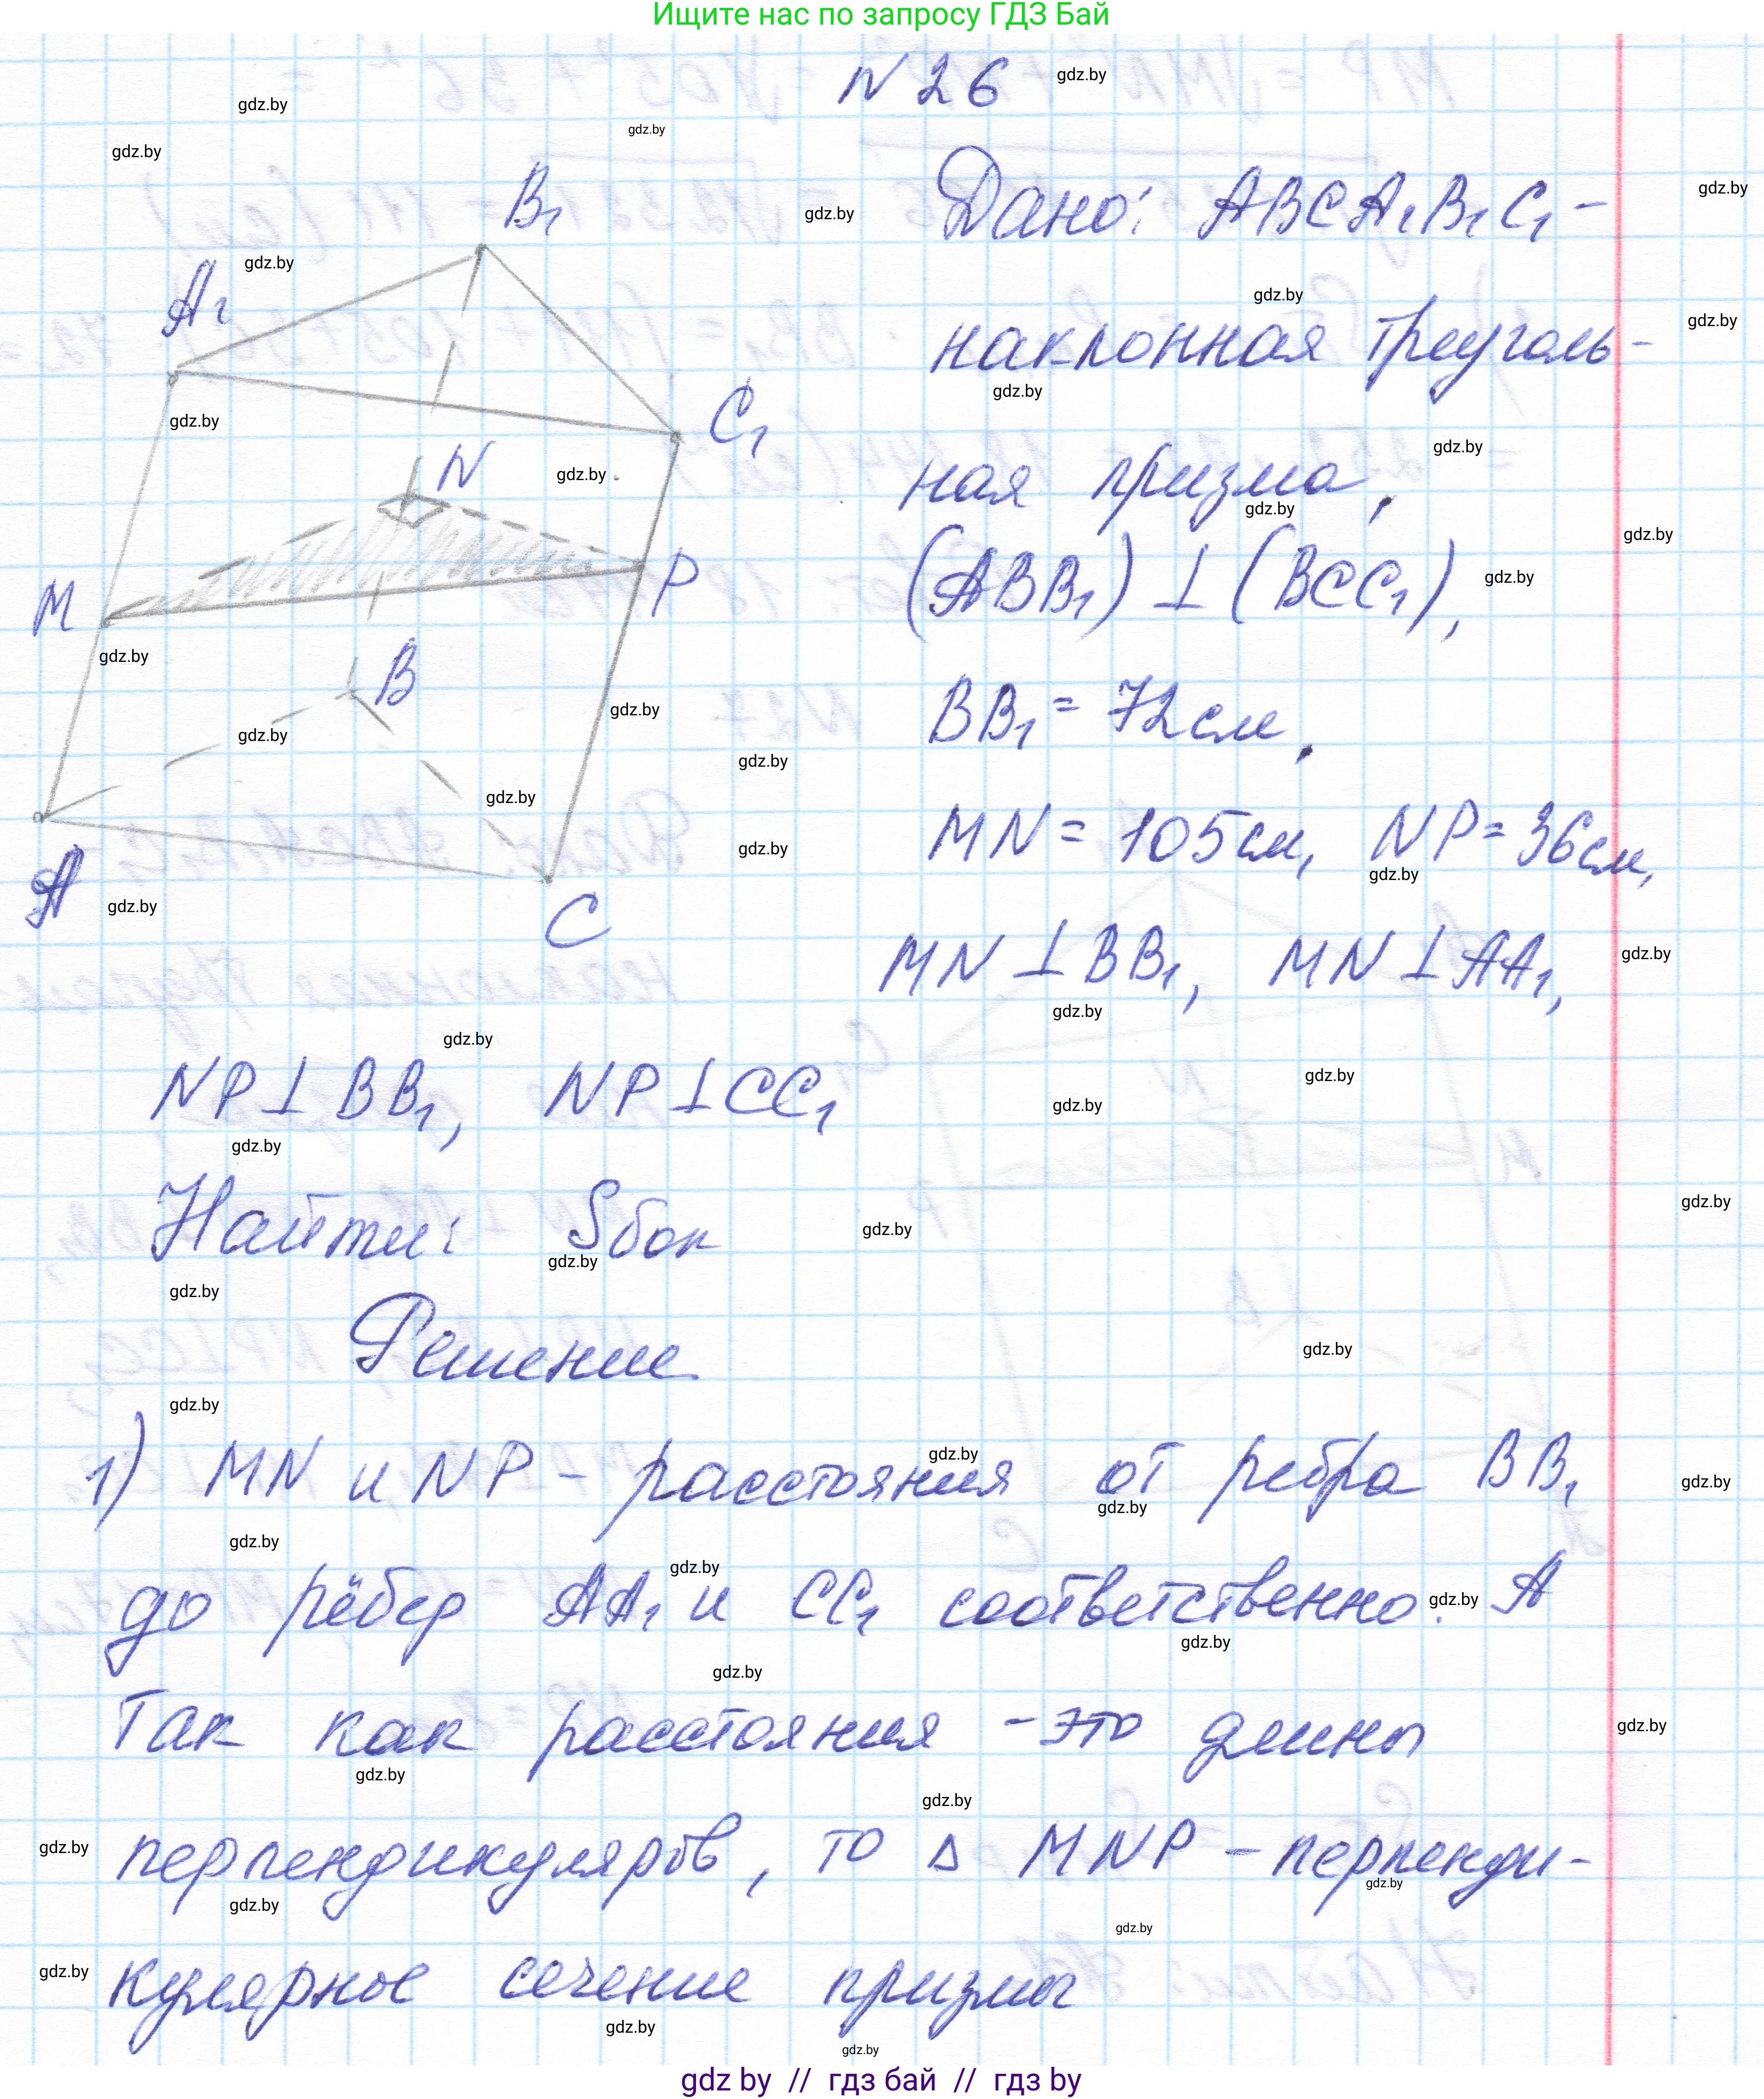 Ищите нас по запросу ГДЗ Бай
N 26
Дано: ABCA₁B₁C₁ -
наклонная треуголь-
ная призма,
(ABB₁) ⊥ (BCC₁),
BB₁ = 72см,
MN = 105см, NP = 36см,
MN ⊥ BB₁, MN ⊥ AA₁,
B₁
A₁
C₁
N
M
P
B
A
C
NP ⊥ BB₁, NP ⊥ CC₁
Найти: Sбок
Решение
1) MN и NP - расстояния от ребра BB₁
до рёбер AA₁ и CC₁ соответственно. А
так как расстояния - это длины
перпендикуляров, то Δ MNP - перпенди-
кулярное сечение призмы
gdz by // гдз бай // гдз by